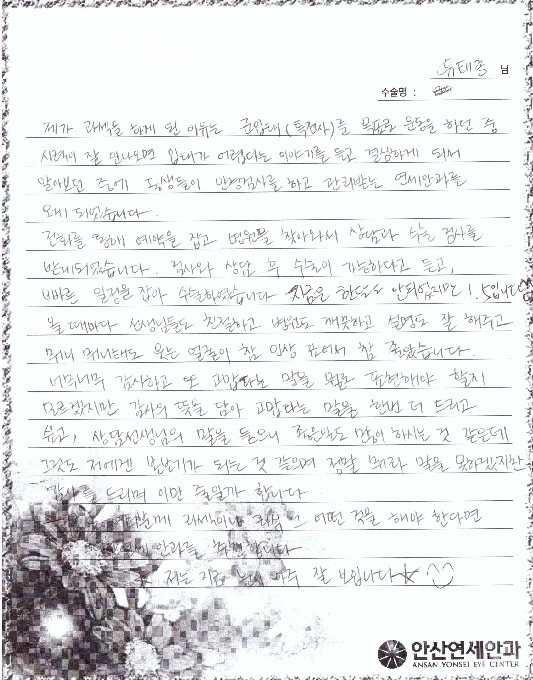 류태용 님
수술명 :
제가 라섹을 하게 된 이유는 군입대(특전사)를 목표로 운동을 하던 중
시력이 잘 안나오면 입대가 어렵다는 이야기를 듣고 결심하게 되서
알아보던 중에 동생들이 안경검사를 하고 관리받는 연세안과를
오게 되었습니다.
전화를 통해 예약을 잡고 병원을 찾아와서 상담과 수술 검사를
받게되었습니다. 검사와 상담 후 수술이 가능하다고 듣고,
빠른 일정을 잡아 수술하였습니다 지금은 한달도 안되었지만 1.5입니다
올 때마다 선생님들도 친절하고 병원도 깨끗하고 설명도 잘 해주고
뭐니 뭐니해도 웃는 얼굴이 참 인상 깊어서 참 좋았습니다.
너무너무 감사하고 또 고맙다는 말을 뭐로 표현해야 할지
모르겠지만 감사의 뜻을 담아 고맙다는 말을 한번 더 드리고
싶고, 상담선생님의 말을 들으니 좋은일도 많이 하시는 것 같은데
그것도 저에겐 본보기가 되는 것 같으며 정말 뭐라 말을 못하겠지만
감사를 드리며 이만 줄일까 합니다
여러분께 라섹이나 라식 그 어떤 것을 해야 한다면
안과를 추천합니다
저는 지금 눈이 아주 잘 보입니다☆
안산연세안과
ANSAN YONSEI EYE CENTER